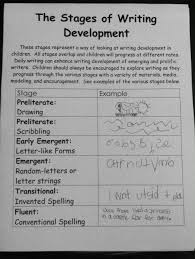 The Stages of Writing
Development
These stages represent a way of looking at writing development in
children. All stages overlap and children will progress at different rates.
Daily writing can enhance writing development of emerging and prolific
writers. Children should always be encouraged to explore writing as they
progress through the various stages with a variety of materials, media,
modeling, and encouragement. See examples of the various stages below.
Stage Example
Preliterate:
Drawing
Preliterate:
Scribbling
Early Emergent:
Letter-like Forms
Emergent:
Random-letters or
letter strings
Transitional:
Invented Spelling
Fluent:
Conventional Spelling